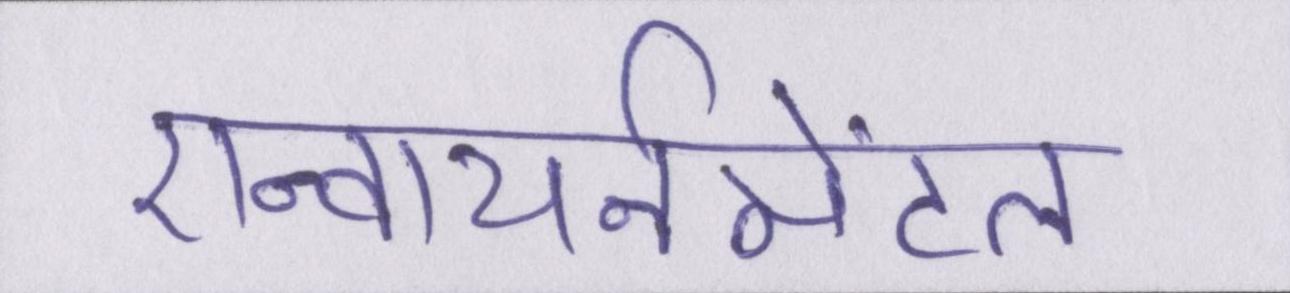 एन्वायर्नमेंटल